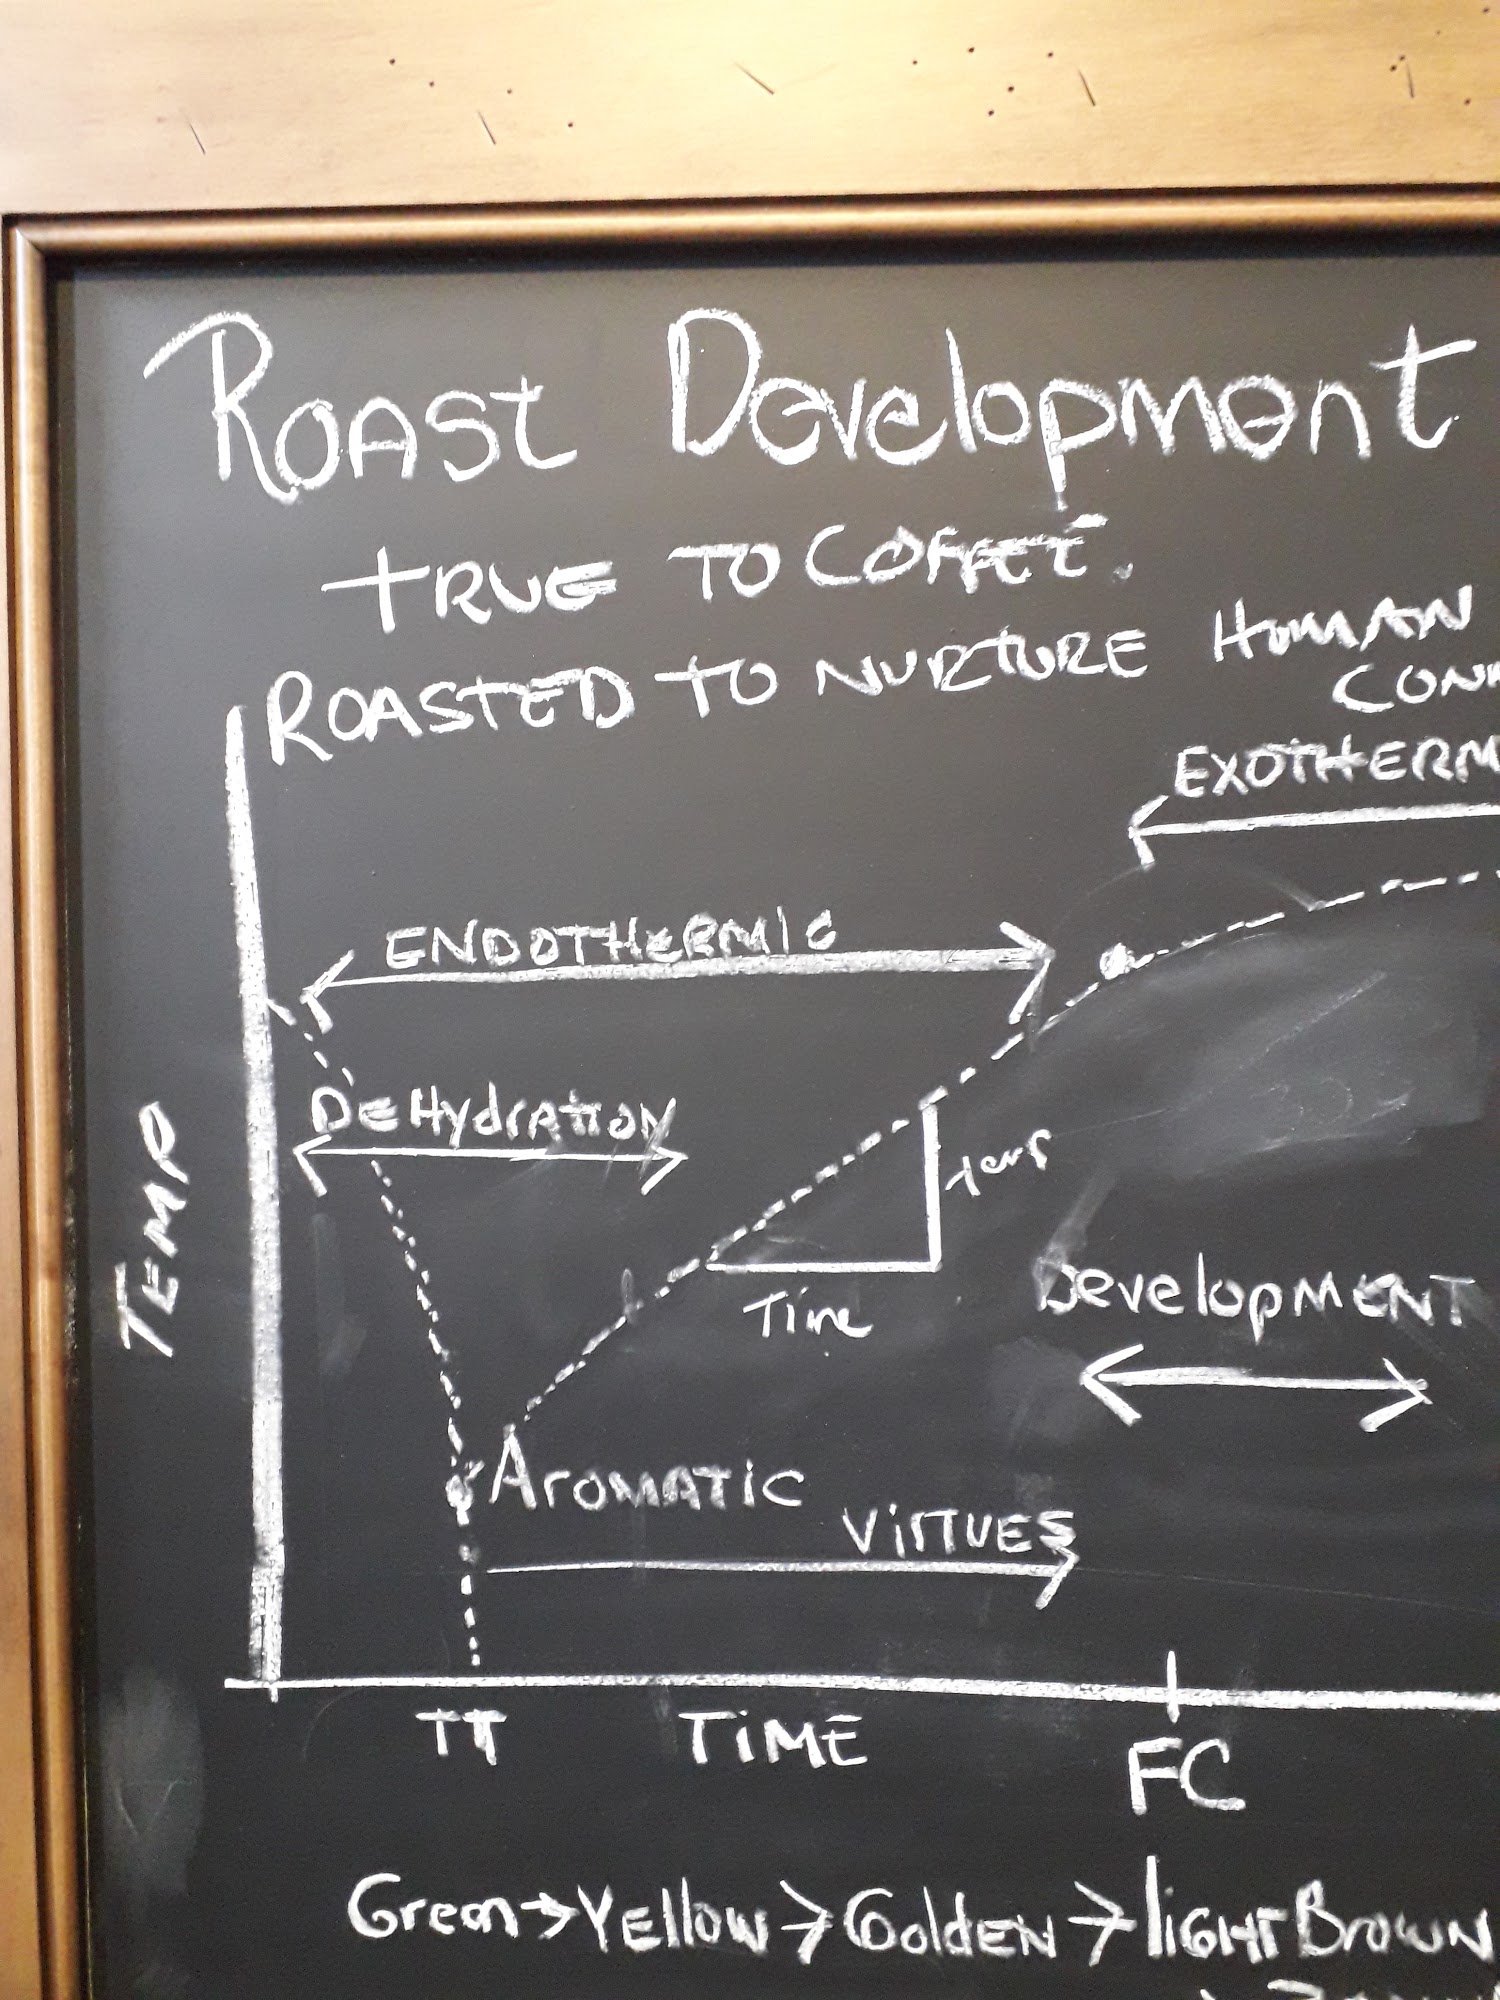 Roast Development
TRUE TO COFFEE.
ROASTED TO NURTURE HUMAN
CONN
EXOTHERM
ENDOTHERMIC
DeHydration
TEMP
temp
Time
Development
Aromatic
Virtues
TT TiME FC
Green→Yellow→Golden→light Brown